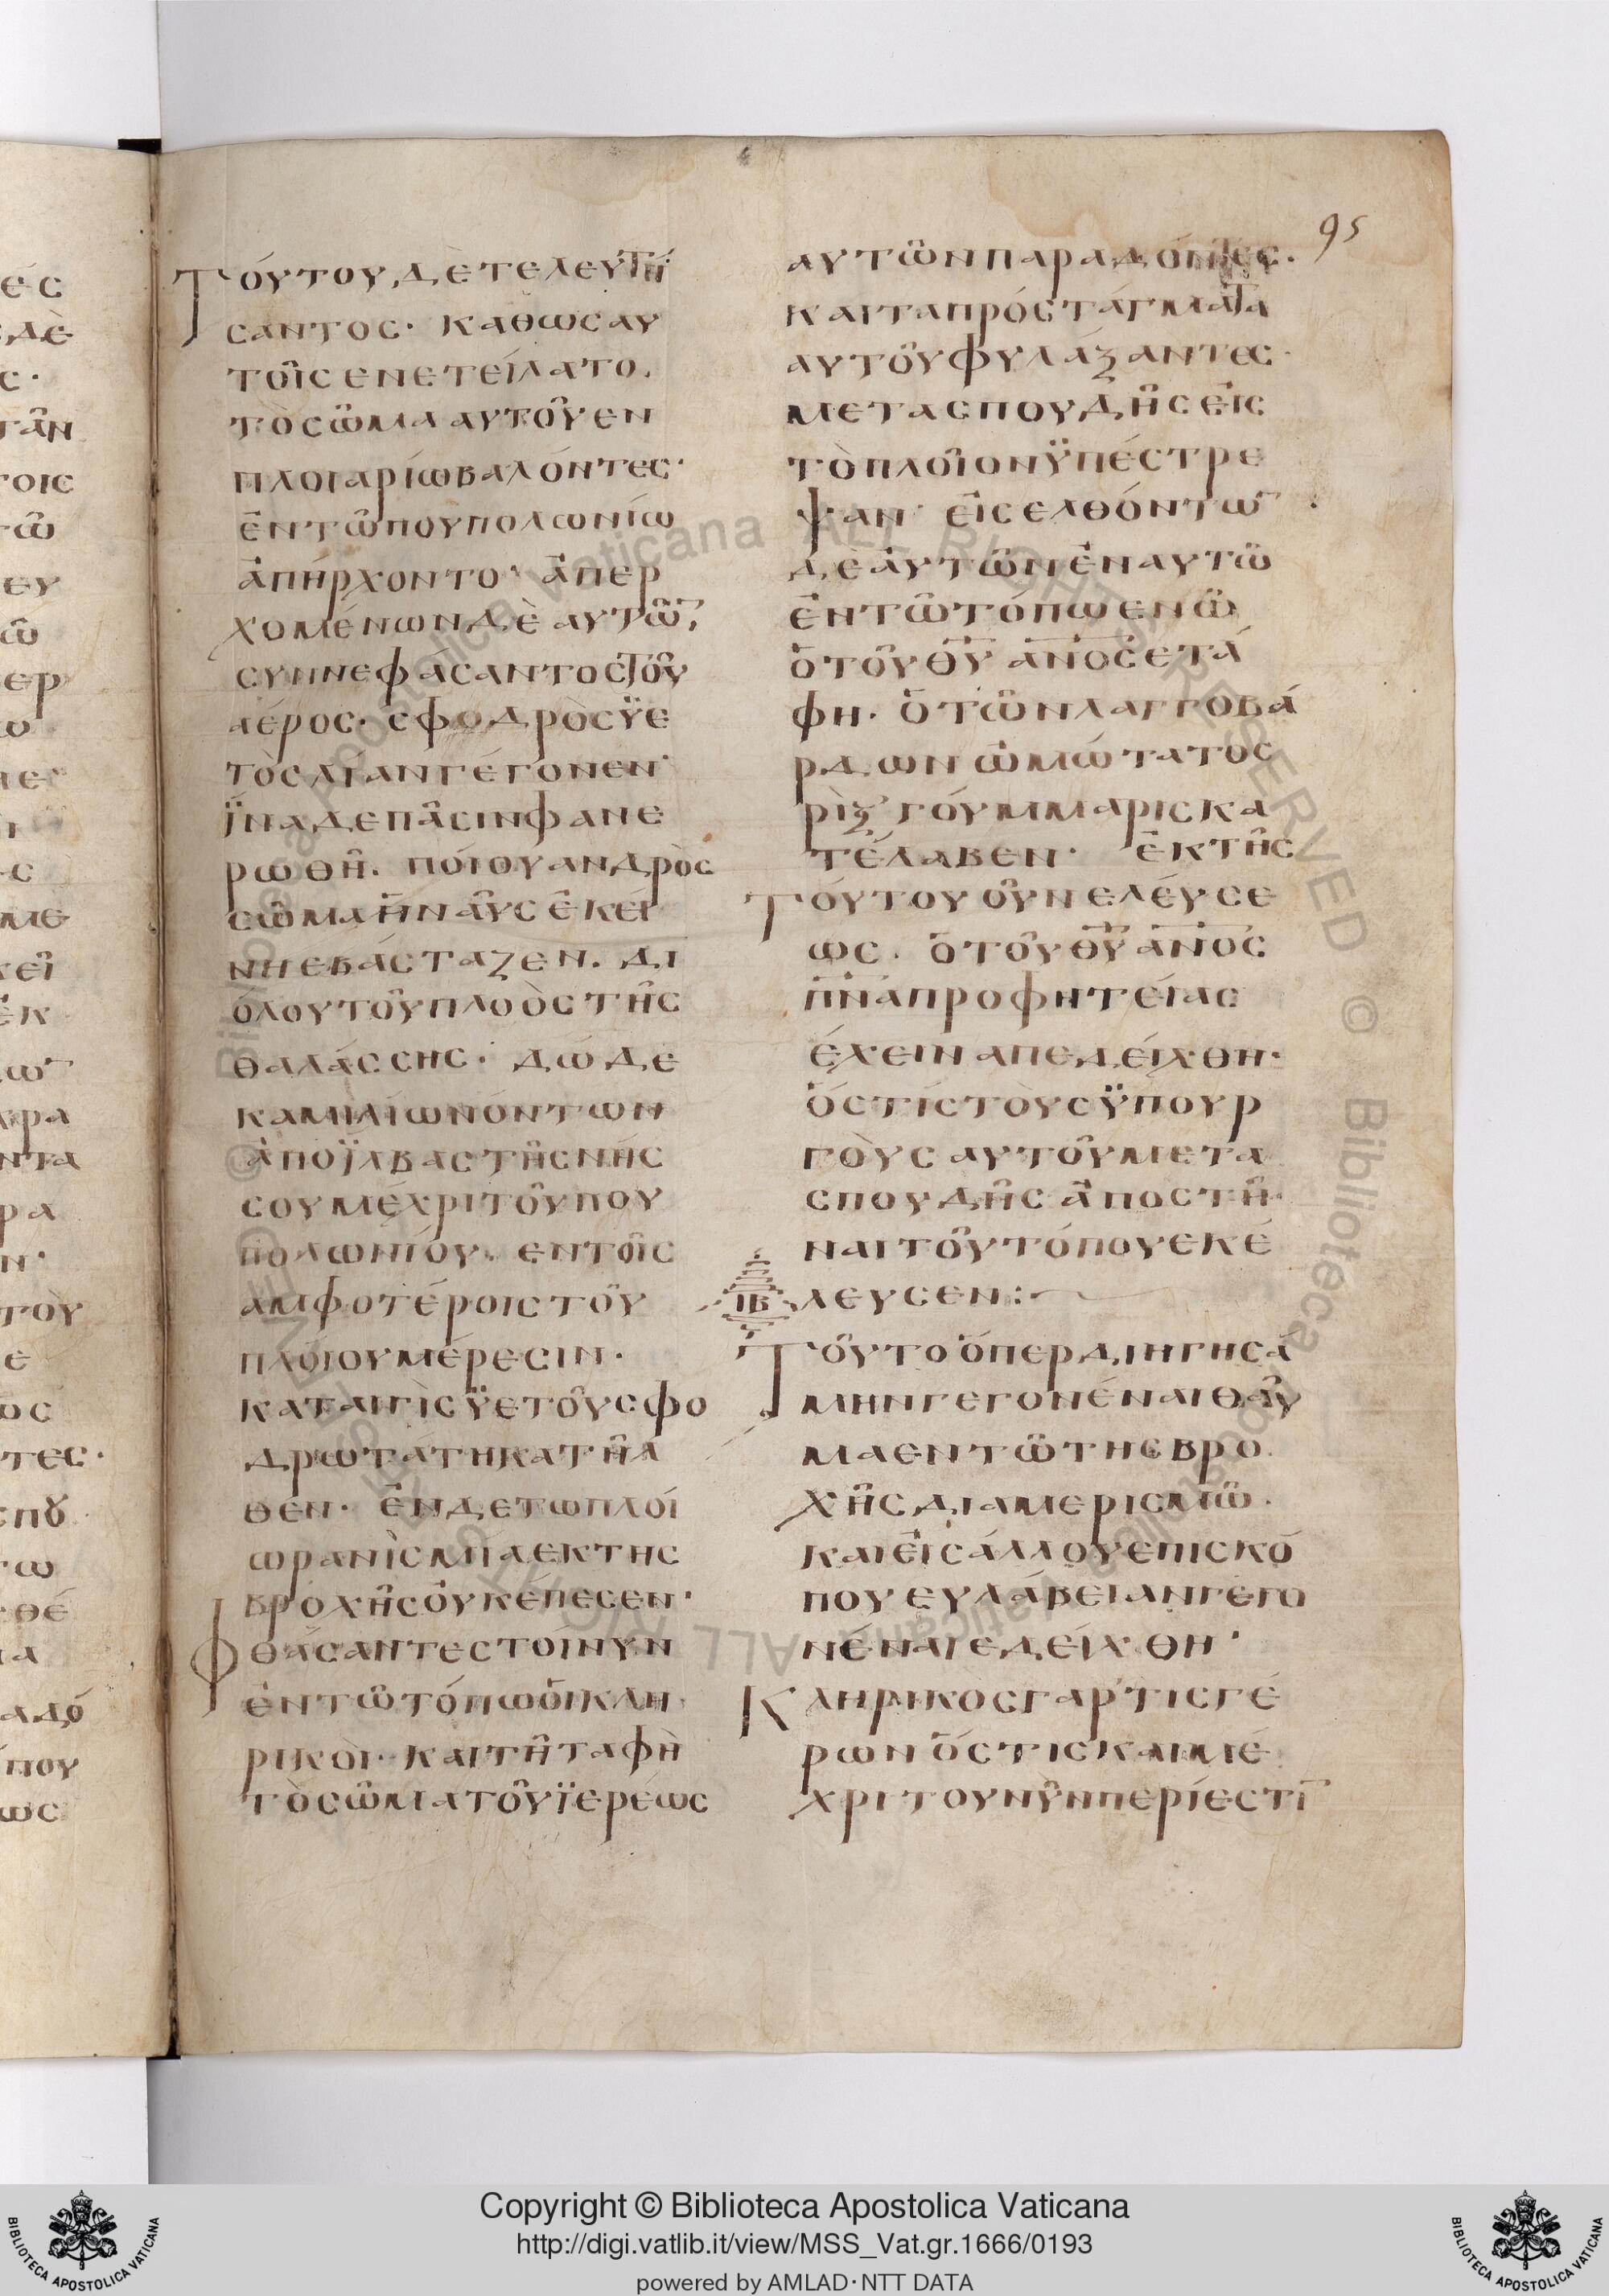 95
Τούτου δὲ τελευτή
σαντος· καθως αυ
τοῖς ενετείλατο.
τὸ σῶμα αυτοῦ εν
πλοιαρίω βαλόντες·
ἐν τῶ πουπολωνίω
ἀπήρχοντο· ἀπερ
χομένων δὲ αυτῶ̅,
συννεφάσαντος τοῦ
αέρος· σφοδρὸς ϋε
τὸς λίαν γέγονεν·
ϊνα δε πᾶσιν φανε
ρωθῆ. ποίου ανδρὸς
σῶμα ἡ ναῦς ἐκεί
νη εβάσταζεν. δι
όλου τοῦ πλοὸς τῆς
θαλάσσης· δώδε
κα μιλίων όντων
ἀπο ϊλβας τῆς νής
σου μέχρι τοῦ που
πολωνίου. εν τοῖς
αμφοτέροις τοῦ
πλοίου μέρεσιν·
καταιγὶς ϋετοῦ σφο
δρωτάτη κατῆλ
θεν· ἐν δε τω πλοί
ω ρανὶς μία εκ της
βροχῆς οὐκ έπεσεν·
Φθάσαντες τοίνυν
ἐν τῶ τόπω ὁι κλη
ρικοὶ· και τῆ ταφὴ
τὸ σῶμα τοῦ ϊερέως
αυτῶν παραδόντες·
και τα πρόςτάγματα
αυτοῦ φυλάξαντες·
μετα σπουδῆς εἰς
τὸ πλοῖον ϋπέστρε
ψαν· εἰσελθόντω̅
δὲ ἀυτῶν ἐν αυτῶ
ἐν τῶ τόπω εν ὧ
ὁ τοῦ θ̅υ̅ α̅ν̅ο̅ς̅ ετά
φη· ὁ τῶν λαγγοβά
ρδων ὠμώτατος
ρὶξ γούμμαρις κα
τέλαβεν· ἐκ τῆς
Τούτου οὖν ελέυσε
ως. ὁ τοῦ θ̅υ̅ α̅ν̅ο̅ς̅
π̅ν̅α̅ προφητείας
έχειν απεδείχθη·
ὅστίς τοὺς ϋπουρ
γοὺς αυτοῦ μετα
σπουδῆς ἀποστῆ
ναι τοῦ τόπου εκέ
ΙΒ λευσεν:
Τοῦτο ὅπερ διηγησά
μην γεγονέναι θαῦ
μα εν τῶ της βρο
χῆς διαμερισμῶ·
και εἰς άλλου επισκό
που ευλάβειαν γεγο
νέναι εδείχθη·
Κληρικὸς γαρ τις γέ
ρων ὅστις και μέ
χρι του νῦν περίεστι̅
Copyright © Biblioteca Apostolica Vaticana
http://digi.vatlib.it/view/MSS_Vat.gr.1666/0193
powered by AMLAD·NTT DATA
BIBLIOTECA APOSTOLICA VATICANA
BIBLIOTECA APOSTOLICA VATICANA